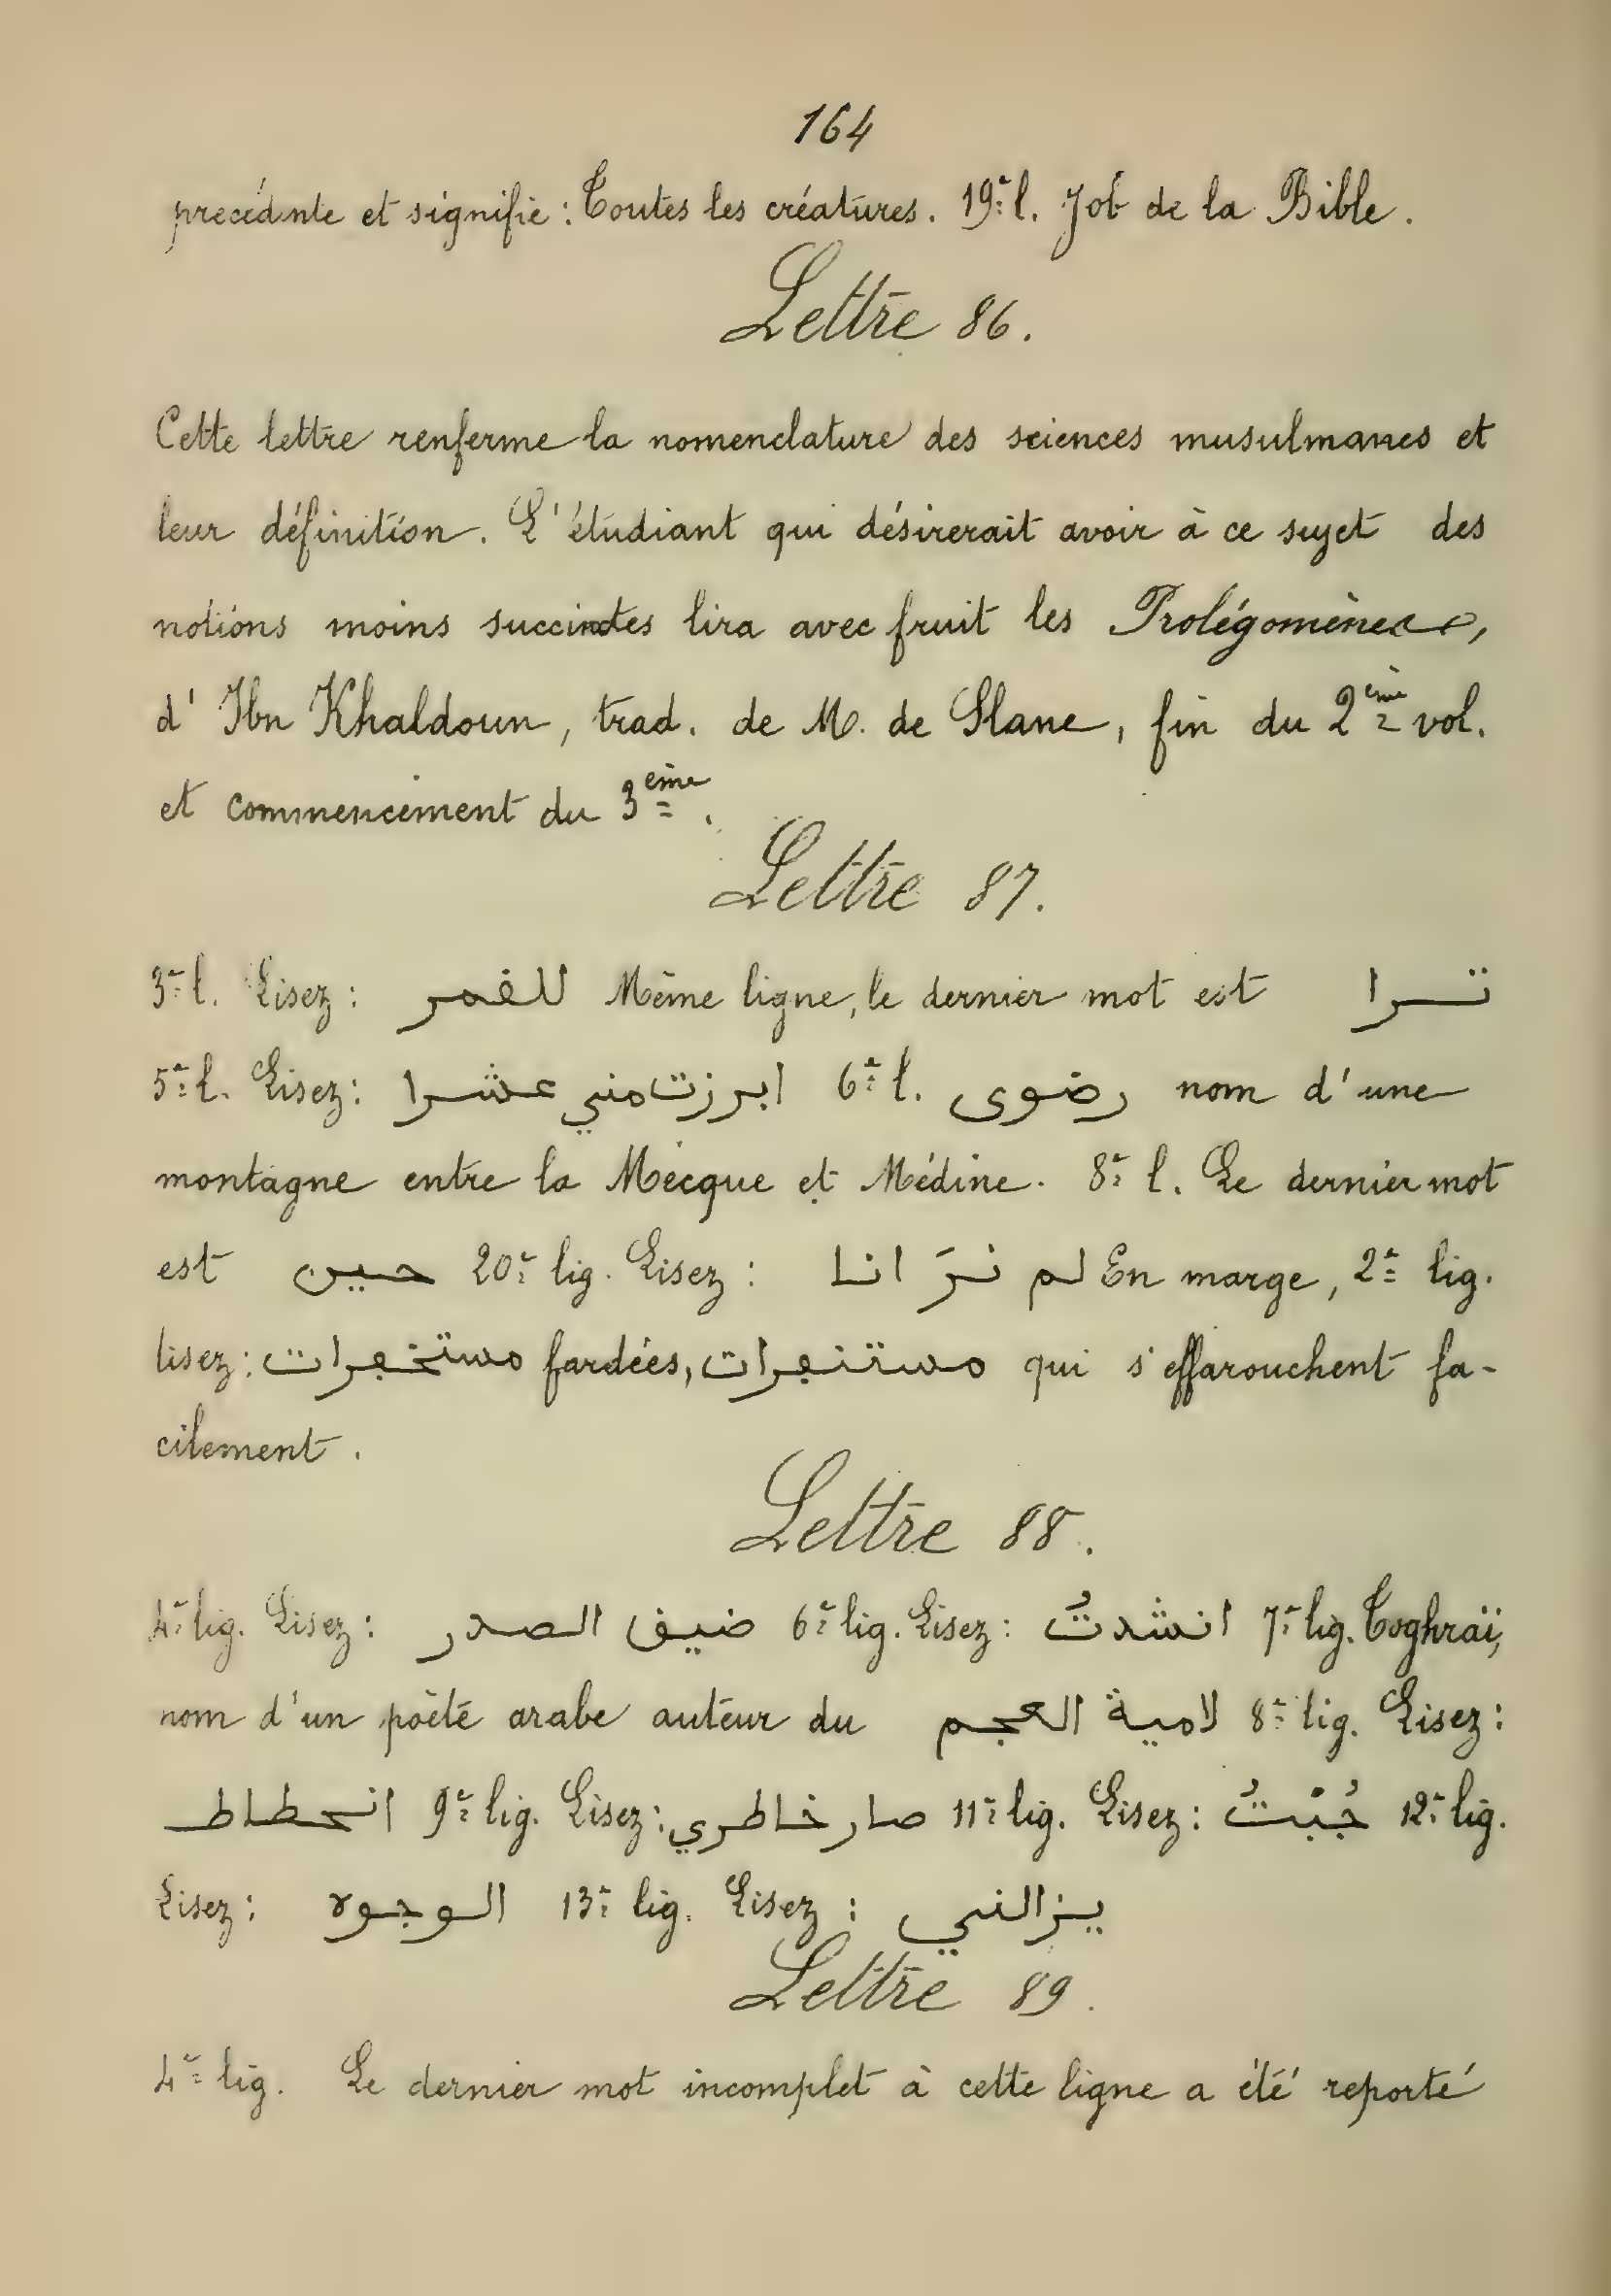 164
precédente et signifie : Toutes les créatures. 19e l. Job de la Bible.
Lettre 86.
Cette lettre renferme la nomenclature des sciences musulmanes et
leur définition. L'étudiant qui désirerait avoir à ce sujet des
notions moins succinctes lira avec fruit les Prolégomènes,
d'Ibn Khaldoun, trad. de M. de Slane, fin du 2ème vol.
et commencement du 3ème.
Lettre 87.
3e l. Lisez : للقمر Même ligne, le dernier mot est تـرا
5e l. Lisez : ابرزت مني عشرا 6e l. رضوى nom d'une
montagne entre la Mecque et Médine. 8e l. Le dernier mot
est حين 20e lig. Lisez : لم نرَ انا En marge, 2e lig.
lisez : مستخمرات fardées, مستنفرات qui s'effarouchent fa-
cilement.
Lettre 88.
4e lig. Lisez : ضيق الصدر 6e lig. Lisez : انشدتُ 7e lig. Toghraï,
nom d'un poète arabe auteur du لامية العجم 8e lig. Lisez :
انحطاط 9e lig. Lisez : صار خاطري 11e lig. Lisez : جُبْتُ 12e lig.
Lisez : الوجوه 13e lig. Lisez :
Lettre 89.
4e lig. Le dernier mot incomplet à cette ligne a été reporté